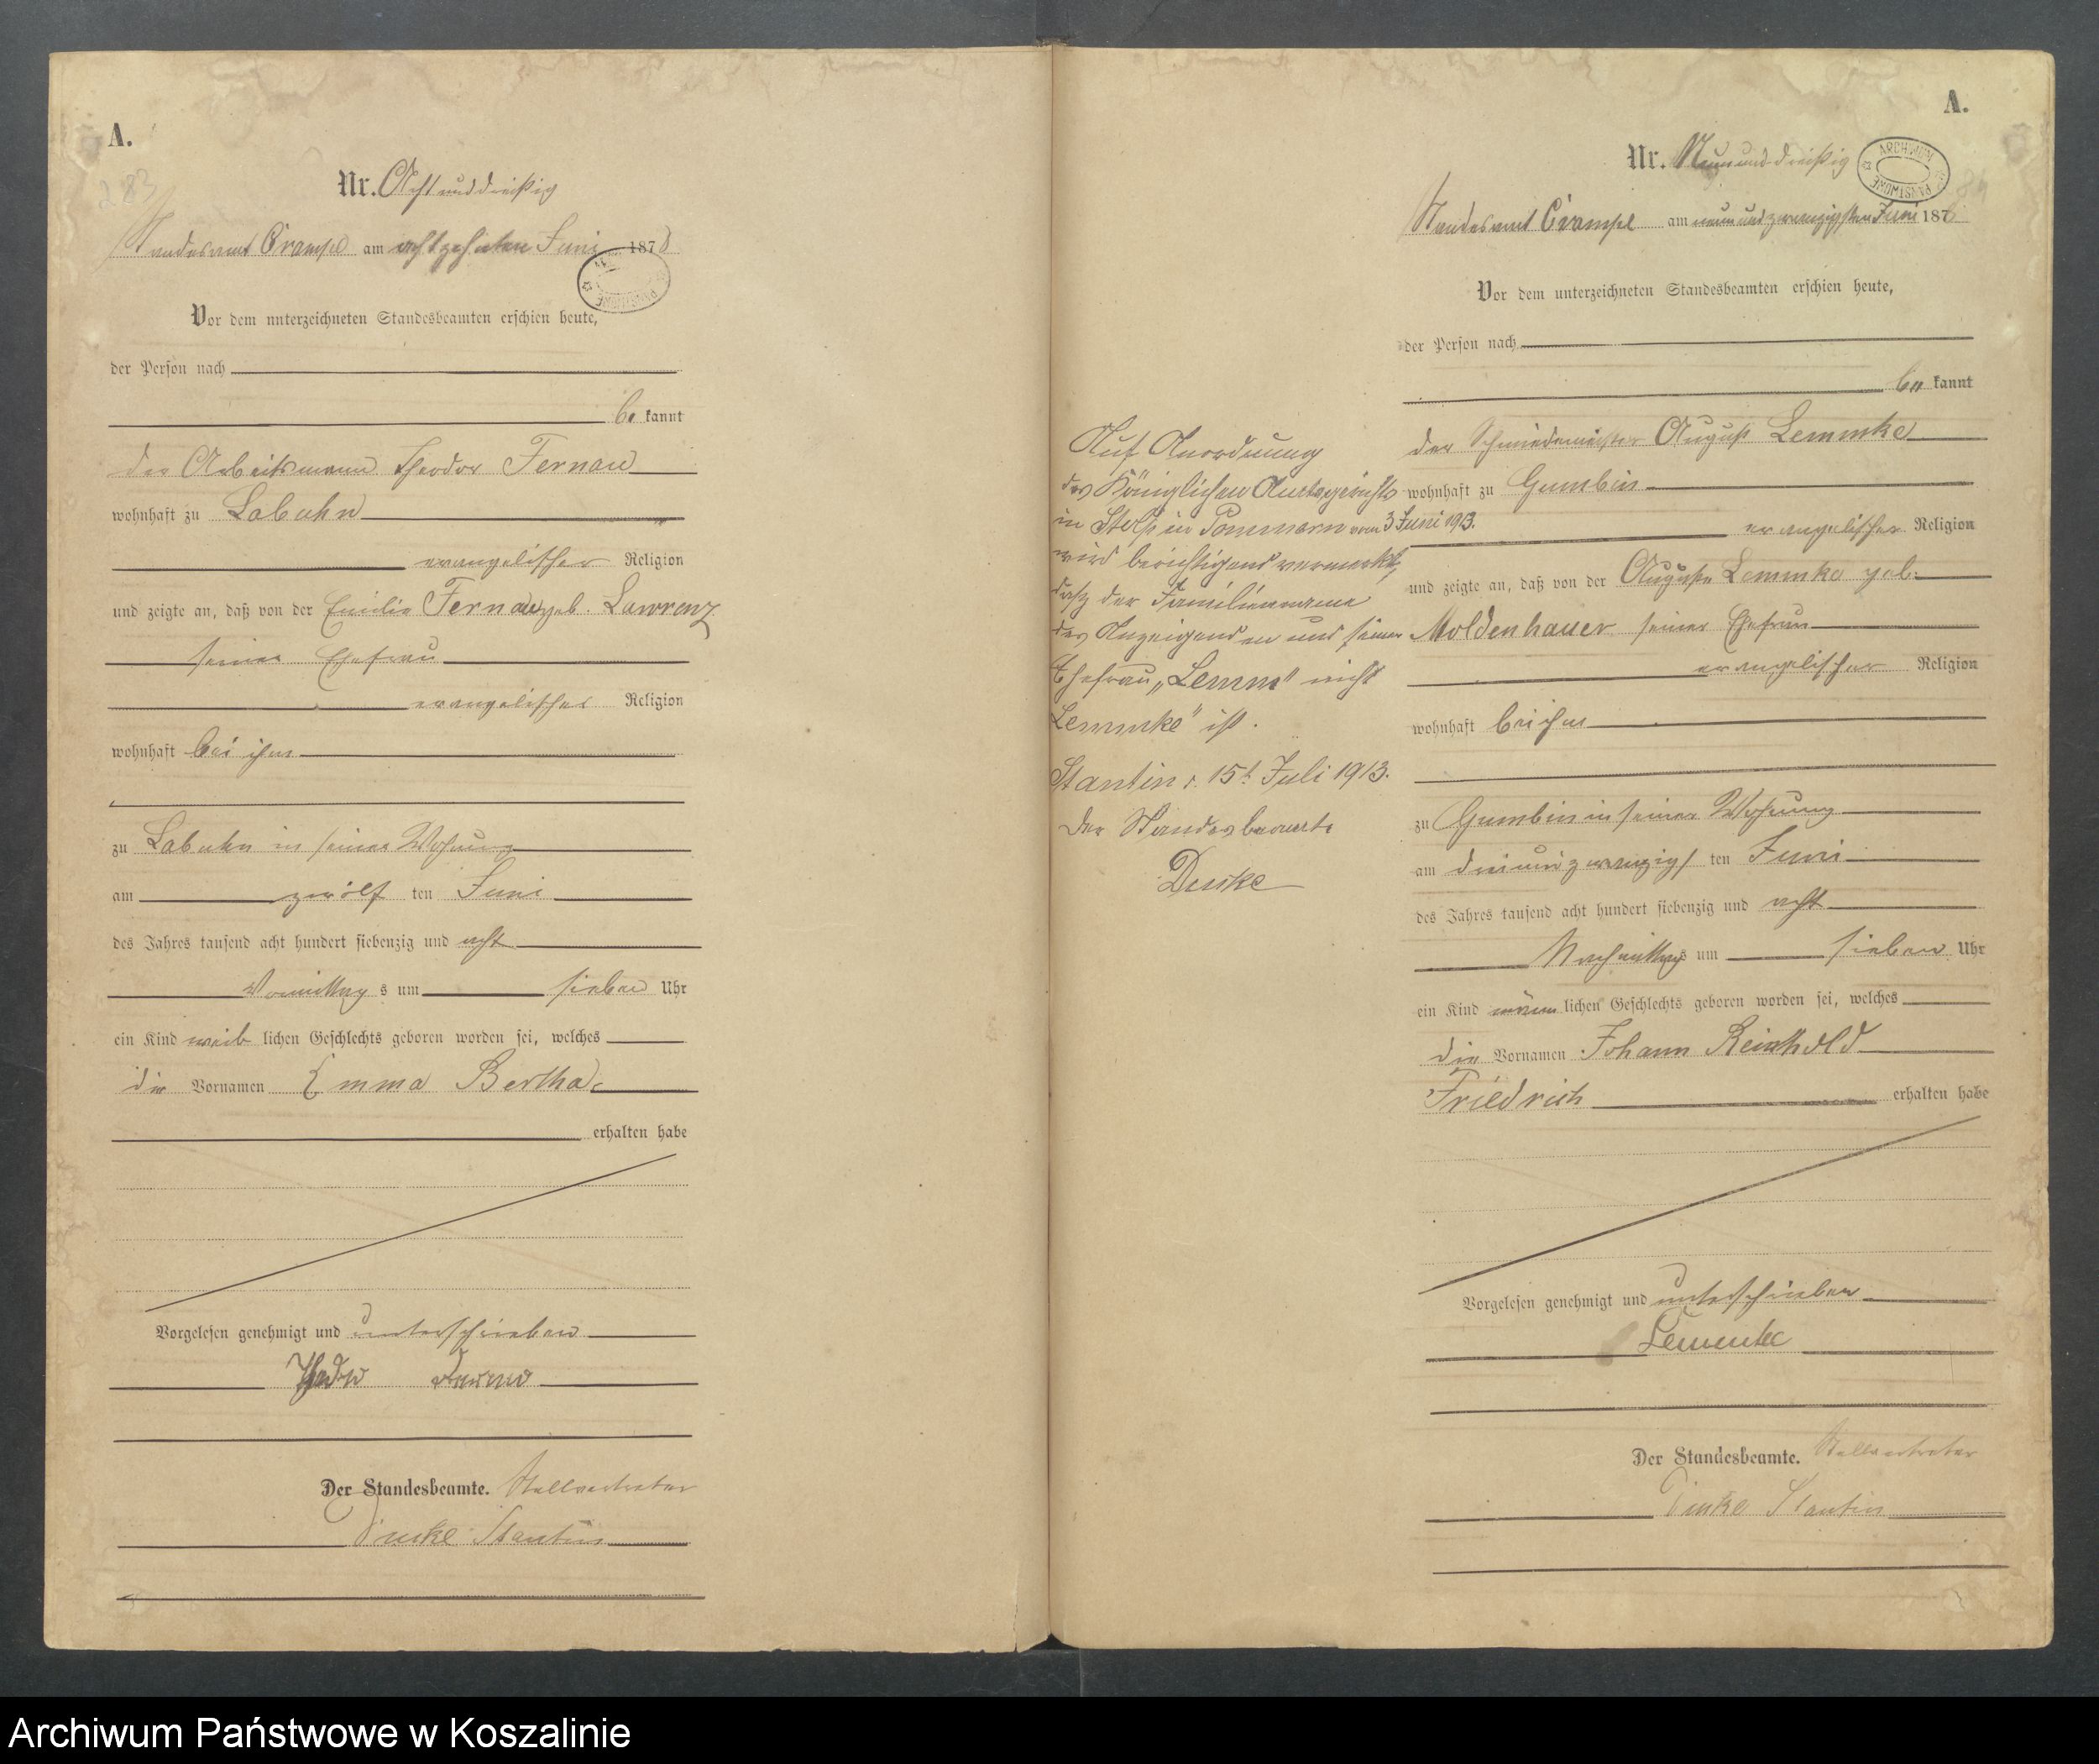 A.
283
Nr. Acht und dreißig
Standesamt Crampe am achtzehnten Juni 1878
Vor dem unterzeichneten Standesbeamten erschien heute,
der Person nach
be kannt
der Arbeitsmann Theodor Fernau
wohnhaft zu Labuhn
evangelischer Religion
und zeigte an, daß von der Emilie Fernau geb. Lawrenz
seiner Ehefrau
evangelischer Religion
wohnhaft bei ihm
zu Labuhn in seiner Wohnung
am zwölf ten Juni
des Jahres tausend acht hundert siebenzig und acht
Vormittag s um sieben Uhr
ein Kind weib lichen Geschlechts geboren worden sei, welches
die Vornamen Emma Bertha
erhalten habe
Vorgelesen genehmigt und unterschrieben
Der Standesbeamte. Stellvertreter
Stantin
Auf Anordnung
des Königlichen Amtsgerichts
in Stolp in Pommern vom 3 Juni 1913.
wird berichtigend vermerkt,
daß der Familienname
des Anzeigenden und seiner
Ehefrau „Lemm" nicht
Lemmke" ist.
Stantin d. 15t Juli 1913.
Der Standesbeamte
A.
ARCHIWUM PAŃSTWOWE
Nr. Neun und dreißig
Standesamt Crampe am neun und zwanzigsten Juni 187
Vor dem unterzeichneten Standesbeamten erschien heute,
der Person nach
be kannt
der Schmiedemeister August Lemmke
wohnhaft zu Gumbin
evangelischer Religion
und zeigte an, daß von der Auguste Lemmke geb.
Moldenhauer seiner Ehefrau
evangelischer Religion
wohnhaft bei ihm
zu Gumbin in seiner Wohnung
am dreiundzwanzigs ten Juni
des Jahres tausend acht hundert siebenzig und acht
Nachmittags um sieben Uhr
ein Kind männ lichen Geschlechts geboren worden sei, welches
die Vornamen Johann Reinhold
Friedrich erhalten habe
Vorgelesen genehmigt und unterschrieben
Lemmke
Der Standesbeamte. Stellvertreter
Stantin
Archiwum Państwowe w Koszalinie